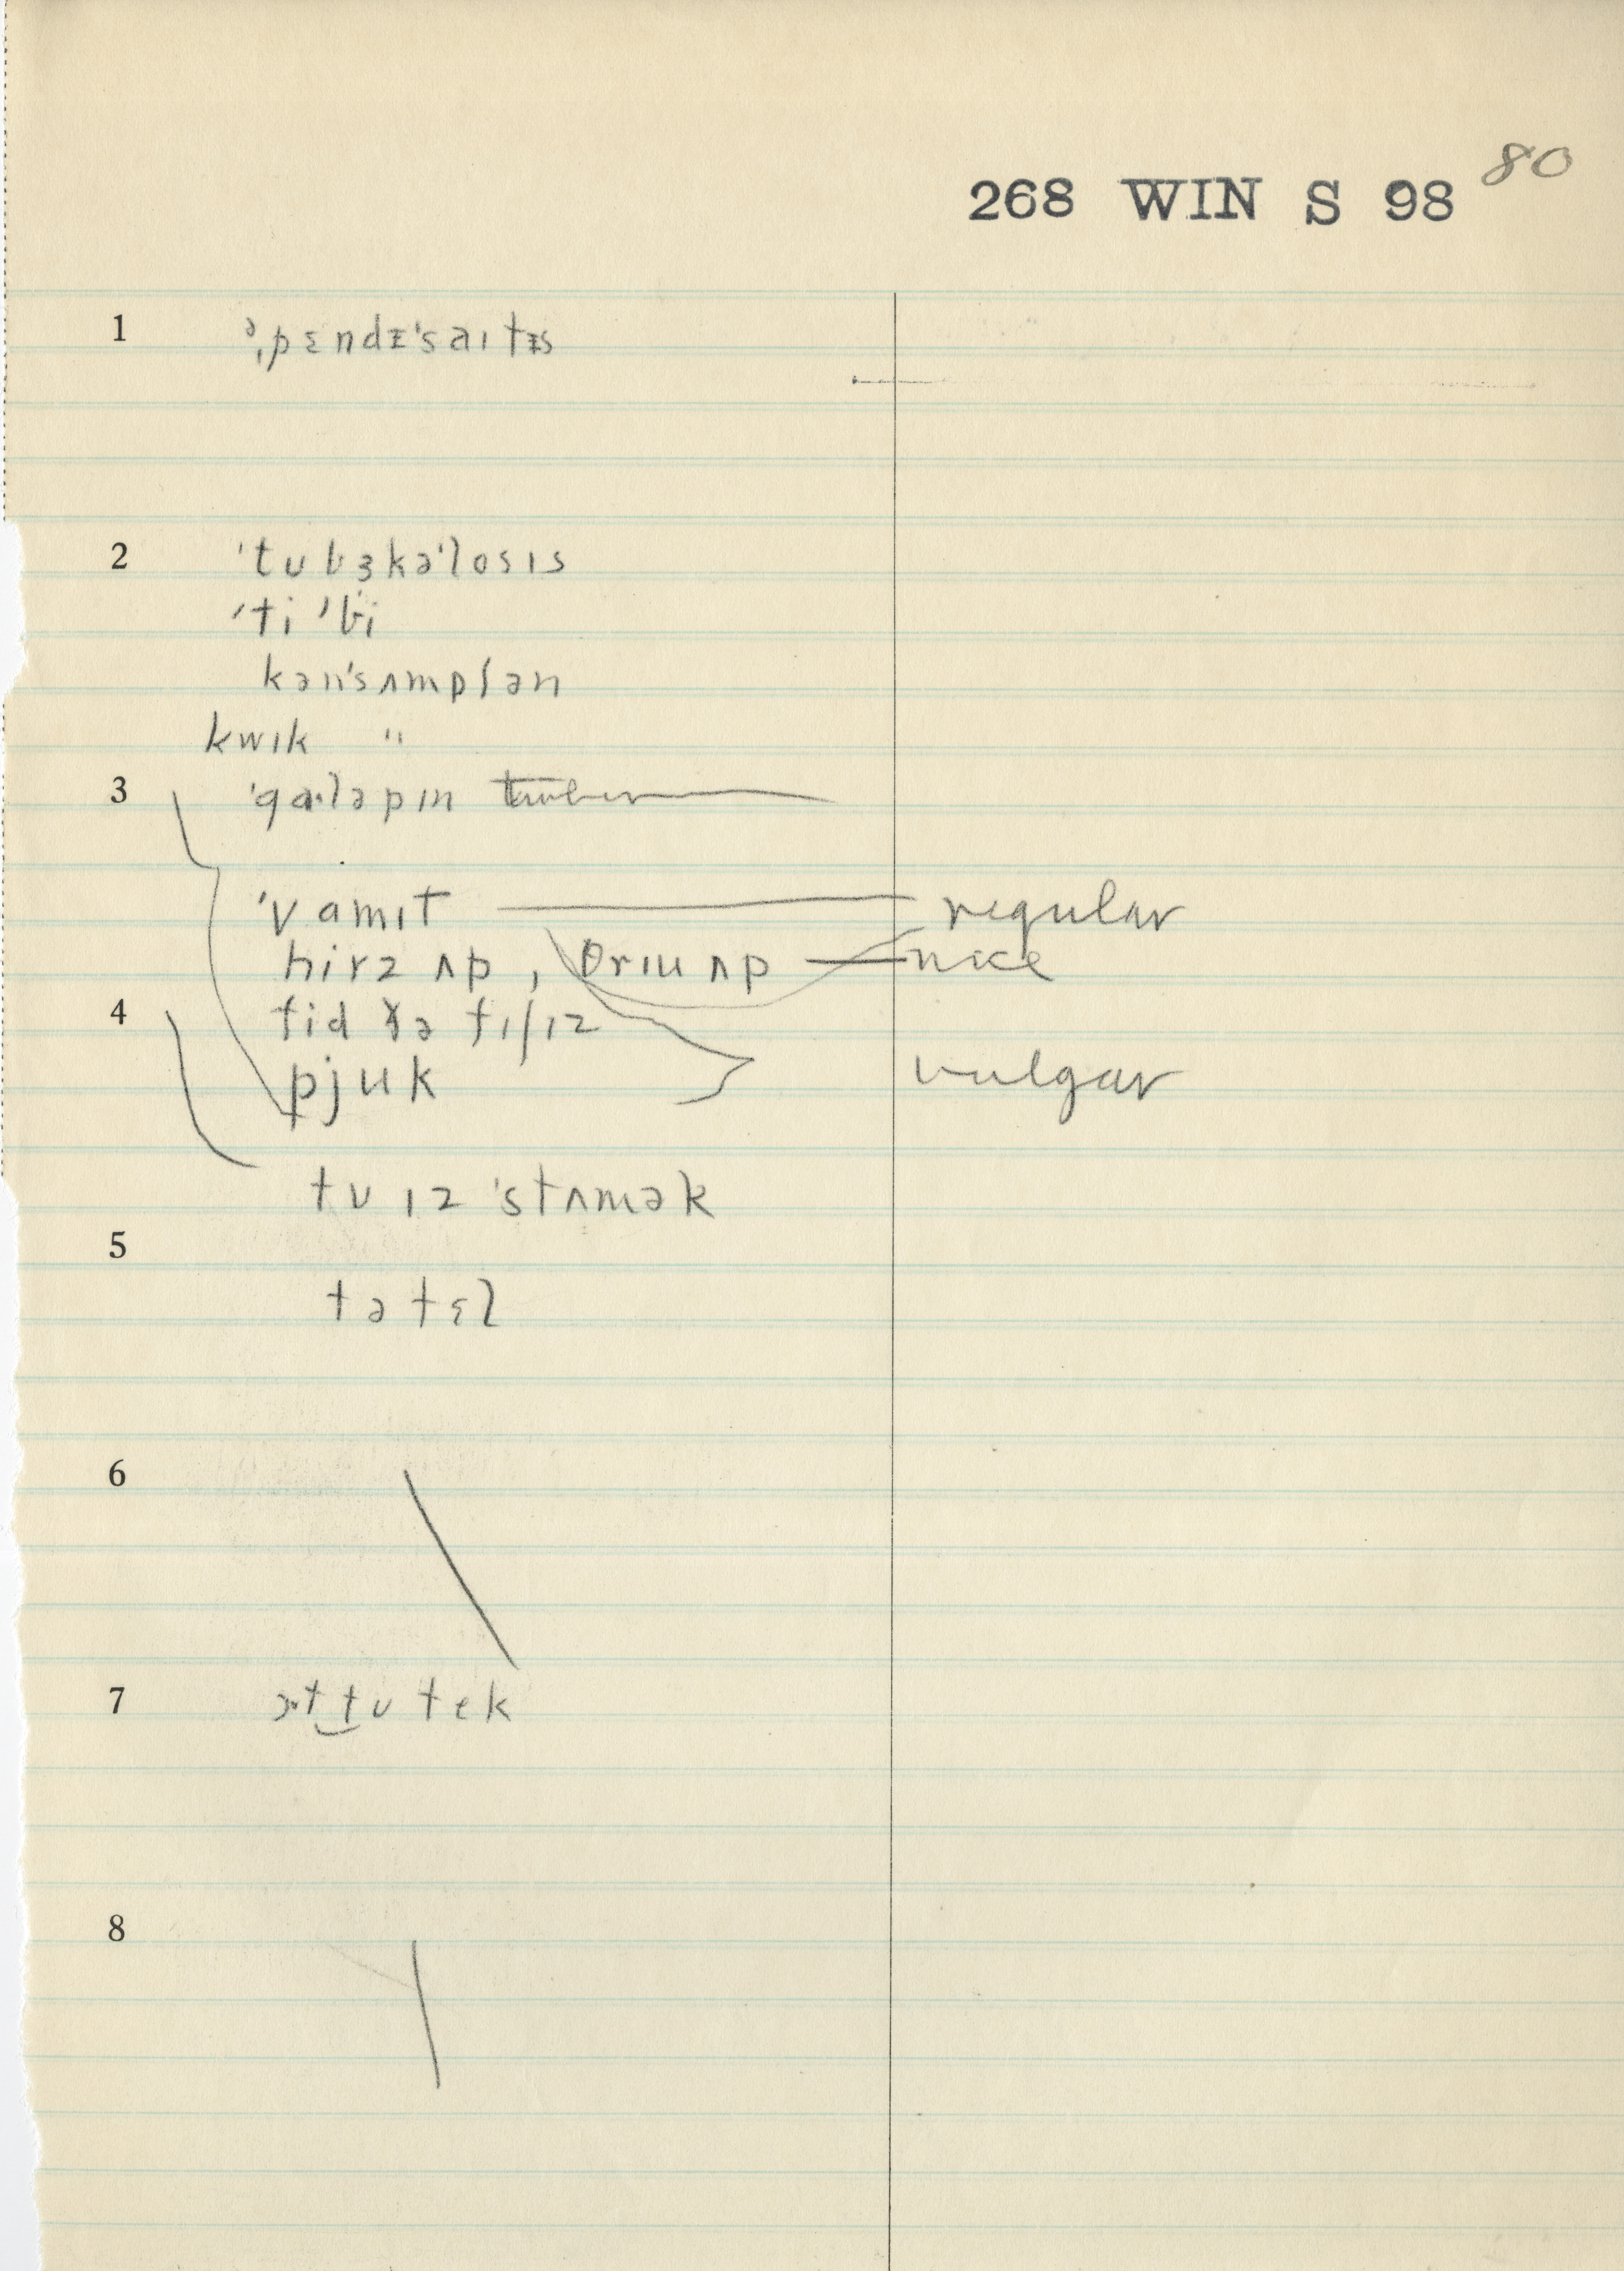 80
268 WIN S 98
1 əˌpɛndɪˈsaɪtɪs
2 ˈtubɜkəˈlosɪs
ˈti ˈbi
kənˈsʌmpʃən
kwɪk "
3 ˈgaˑləpɪn
ˈvamɪt regular
hivz ʌp , θrɪu ʌp nice
4 fid ðə fɪʃɪz
pjuk vulgar
tu ɪz ˈstʌmək
5
tə tɛl
6
7 tu tek
8